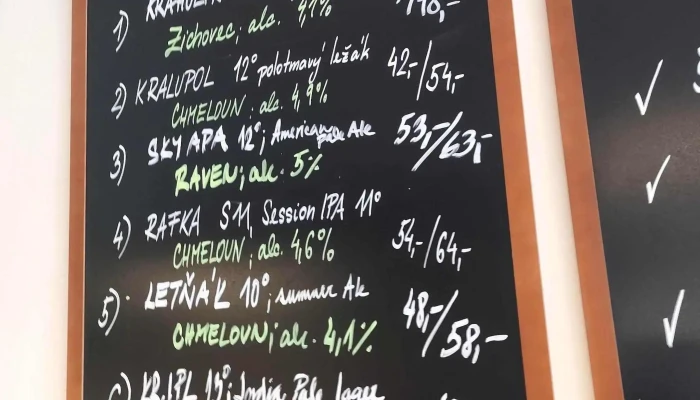 1)
Zichovec; alc. 4,7%
2) KRALUPOL 12° polotmavý ležák 42,-/54,-
CHMELOUN; alc. 4,9%
3) SKY APA 12°; American Pale Ale 53,-/63,-
RAVEN; alc. 5%
4) RAFKA S11, Session IPA 11° 54,-/64,-
CHMELOUN; alc. 4,6%
5) LETŇÁK 10°; summer Ale 48,-/58,-
CHMELOUN; alc. 4,1%
India Pale Lager